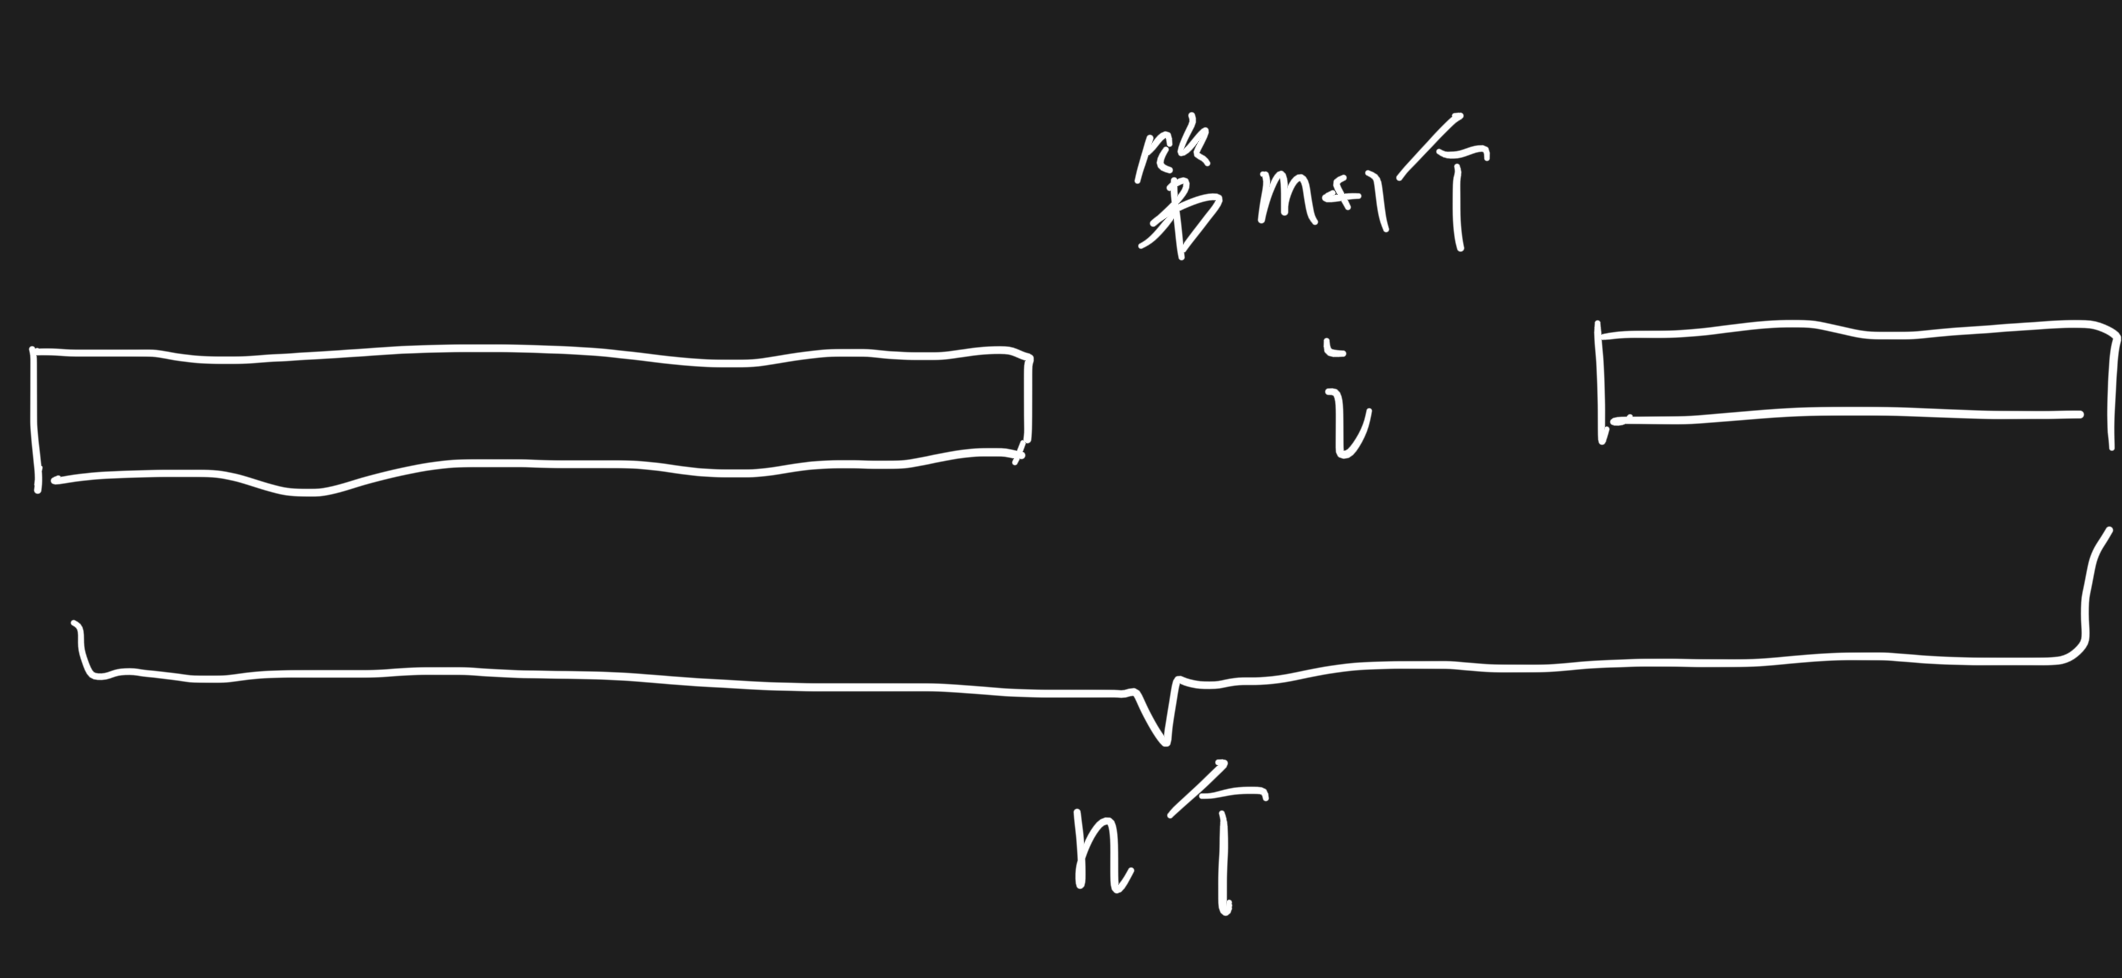 第m+1个
i
n个